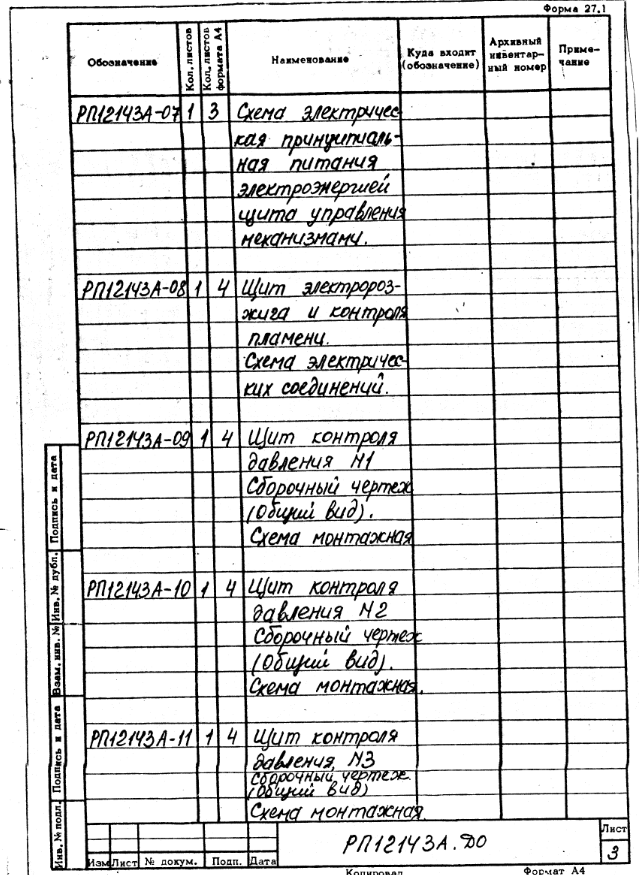 Форма 27.1
Обозначение Кол. листов Кол. листов формата А4 Наименование Куда входит (обозначение) Архивный инвентар- ный номер Приме- чание
РП12143А-07 1 3 Схема электричес
кая принципиаль-
ная питания
электроэнергией
щита управления
механизмами.
РП12143А-08 1 4 Щит электророз-
жига и контроля
пламени.
Схема электричес-
ких соединений.
РП12143А-09 1 4 Щит контроля
давления N1
Сборочный чертеж
(Общий вид).
Схема монтажная
РП12143А-10 1 4 Щит контроля
давления N2
Сборочный чертеж
(Общий вид).
Схема монтажная.
РП12143А-11 1 4 Щит контроля
давления N3
Сборочный чертеж
(Общий вид)
Схема монтажная.
Инв. № подл. Подпись и дата Взам. инв. № Инв. № дубл. Подпись и дата
Изм Лист № докум. Подп. Дата
РП12143А.ДО
Лист
3
Копировал Формат А4